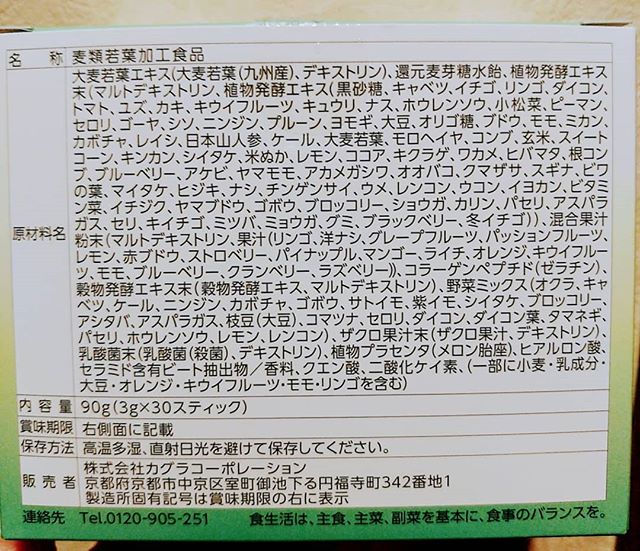 名称 麦類若葉加工食品
原材料名 大麦若葉エキス(大麦若葉(九州産)、デキストリン)、還元麦芽糖水飴、植物発酵エキス
末(マルトデキストリン、植物発酵エキス(黒砂糖、キャベツ、イチゴ、リンゴ、ダイコン、
トマト、ユズ、カキ、キウイフルーツ、キュウリ、ナス、ホウレンソウ、小松菜、ピーマン、
セロリ、ゴーヤ、シソ、ニンジン、プルーン、ヨモギ、大豆、オリゴ糖、ブドウ、モモ、ミカン、
カボチャ、レイシ、日本山人参、ケール、大麦若葉、モロヘイヤ、コンブ、玄米、スイート
コーン、キンカン、シイタケ、米ぬか、レモン、ココア、キクラゲ、ワカメ、ヒバマタ、根コン
ブ、ブルーベリー、アケビ、ヤマモモ、アカメガシワ、オオバコ、クマザサ、スギナ、ビワ
の葉、マイタケ、ヒジキ、ナシ、チンゲンサイ、ウメ、レンコン、ウコン、イヨカン、ビタミ
ン菜、イチジク、ヤマブドウ、ゴボウ、ブロッコリー、ショウガ、カリン、パセリ、アスパラ
ガス、セリ、キイチゴ、ミツバ、ミョウガ、グミ、ブラックベリー、冬イチゴ))、混合果汁
粉末(マルトデキストリン、果汁(リンゴ、洋ナシ、グレープフルーツ、パッションフルーツ、
レモン、赤ブドウ、ストロベリー、パイナップル、マンゴー、ライチ、オレンジ、キウイフルー
ツ、モモ、ブルーベリー、クランベリー、ラズベリー))、コラーゲンペプチド(ゼラチン)、
穀物発酵エキス末(穀物発酵エキス、マルトデキストリン)、野菜ミックス(オクラ、キャ
ベツ、ケール、ニンジン、カボチャ、ゴボウ、サトイモ、紫イモ、シイタケ、ブロッコリー、
アシタバ、アスパラガス、枝豆(大豆)、コマツナ、セロリ、ダイコン、ダイコン葉、タマネギ、
パセリ、ホウレンソウ、レモン、レンコン)、ザクロ果汁末(ザクロ果汁、デキストリン)、
乳酸菌末(乳酸菌(殺菌)、デキストリン)、植物プラセンタ(メロン胎座)、ヒアルロン酸、
セラミド含有ビート抽出物／香料、クエン酸、二酸化ケイ素、(一部に小麦・乳成分・
大豆・オレンジ・キウイフルーツ・モモ・リンゴを含む)
内容量 90g(3g×30スティック)
賞味期限 右側面に記載
保存方法 高温多湿、直射日光を避けて保存してください。
販売者 株式会社カグラコーポレーション
京都府京都市中京区室町御池下る円福寺町342番地1
製造所固有記号は賞味期限の右に表示
連絡先 Tel.0120-905-251 食生活は、主食、主菜、副菜を基本に、食事のバランスを。